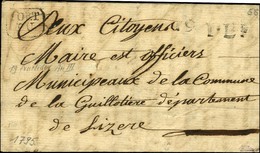 Aux Citoyens
Maire est officiers
Municipeaux de la Commune
de la Guillotiere département
de Lizere
1795